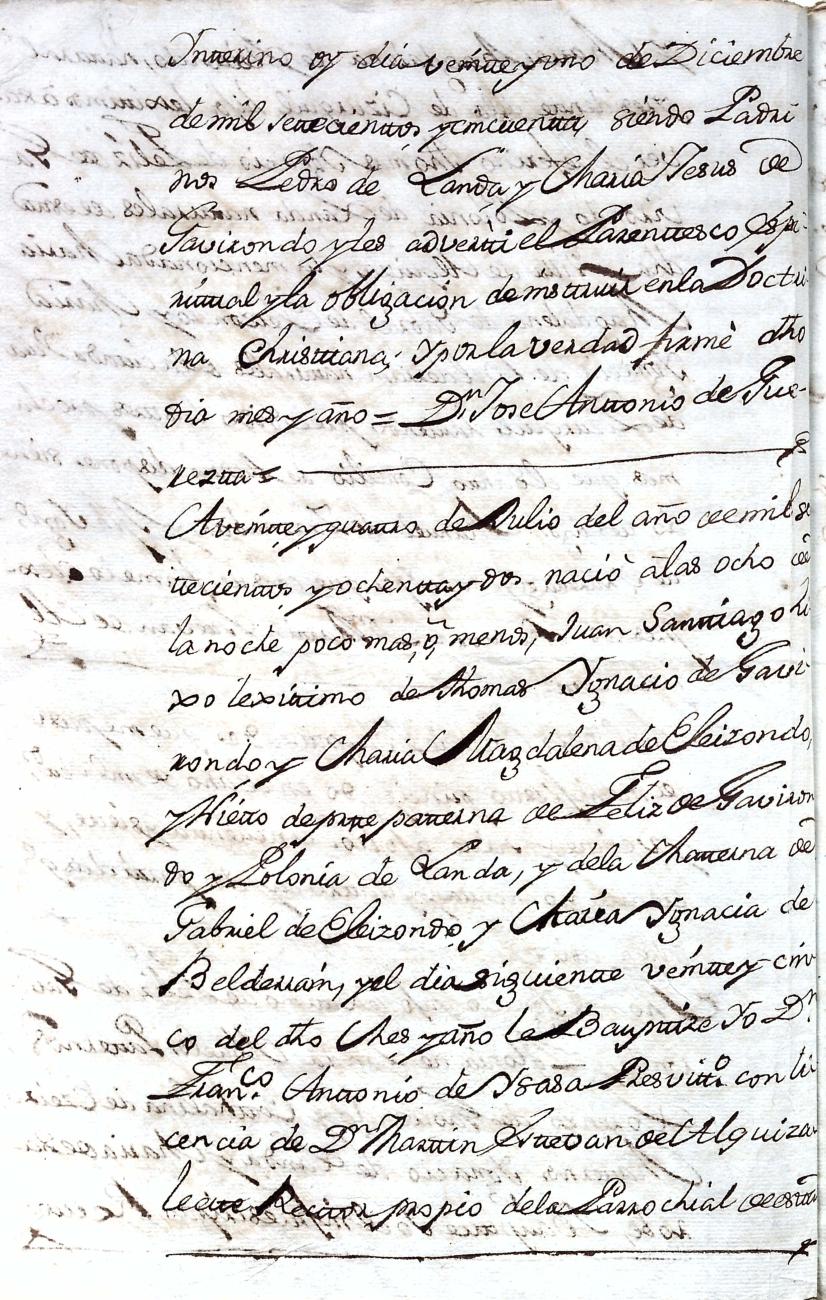 Ynterino oy dia veinte y uno de Diciembre
de mil settecientos y cincuenta, siendo Padri
nos Pedro de Landa y Maria Jesus de
Gavirondo y les adverti el Parenttesco Espi-
rittual y la obligación de instruir en la Doctri-
na Christtiana; Y por la verdad firmè dho
dia mes y año = Dn Jose Anttonio de Gue-
rezua =
A veintte y quattro de Julio del año de mil se
ttecienttos, y ochentta y dos nació à las ocho de
la noche poco mas, ò, menos, Juan Santtiago hi-
xo lexittimo de Thomas Ygnacio de Gavi
rondo y Maria Magdalena de Eleizondo,
y Nietto de partte patterna de Feliz de Gaviron
do y Polonia de Landa, y de la Matterna de
Gabriel de Eleizondo y María Ygnacia de
Belderrain, y el dia siguientte veintte y cin
co del dho Mes y año le Bauptize Yo Dn
Franco. Anttonio de Ysasa Presvittº. con li
cencia de Dn Marttin Esttevan de Alguiza
lette Rector propio de la Parrochial de estta